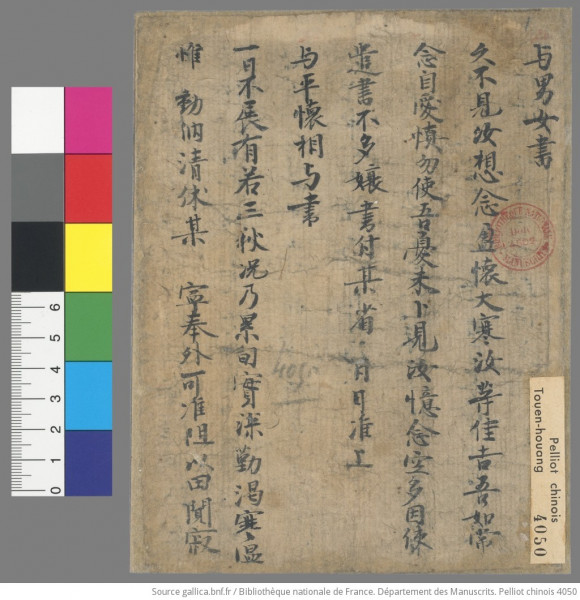 与男女書
久不見汝想念盈懷大寒汝等佳吉吾如常
念自愛慎勿使吾憂未卜見汝憶念空多因使
遣書不多孃書付某省月日准上
与平懷相与書
一日不展有若三秋况乃累旬實深勤渴寒溫
惟 動納清休某 寧奉外可准阻以田閒寂
Pelliot chinois
Touen-houang
4050
4050
6
5
4
3
2
1
0
Source gallica.bnf.fr / Bibliothèque nationale de France. Département des Manuscrits. Pelliot chinois 4050